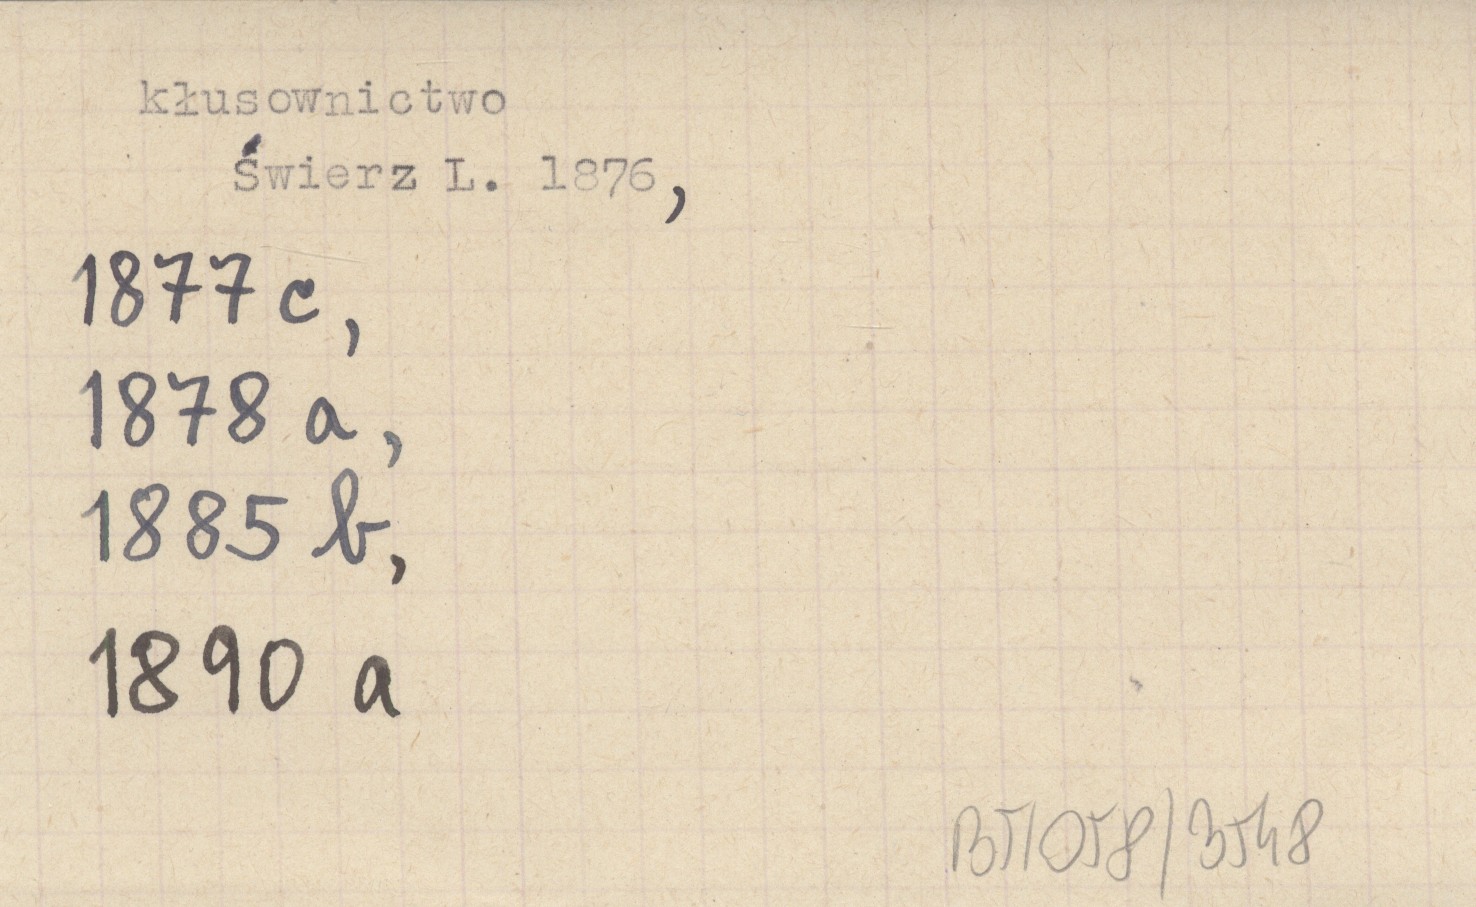 kłusownictwo
Świerz L. 1876,
1877 c,
1878 a,
1885 b,
1890 a
B51058/3548